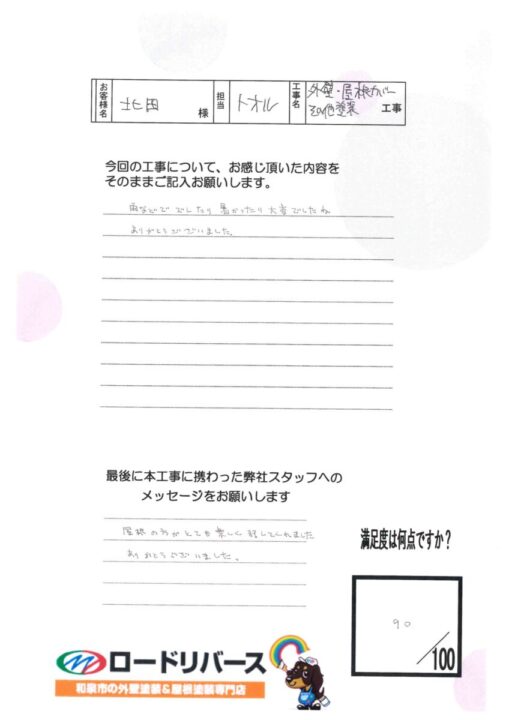 お客様名 北田 様 担当 トオル 工事名 外壁・屋根カバー
その他塗装 工事
今回の工事について、お感じ頂いた内容を
そのままご記入お願いします。
雨などで でしたり 暑かったり 大変でしたね
ありがとうございました。
最後に本工事に携わった弊社スタッフへの
メッセージをお願いします
屋根の方がとても楽しく 話してくれました
ありがとうございました。
満足度は何点ですか？
90
/100
ロードリバース
和泉市の外壁塗装&屋根塗装専門店